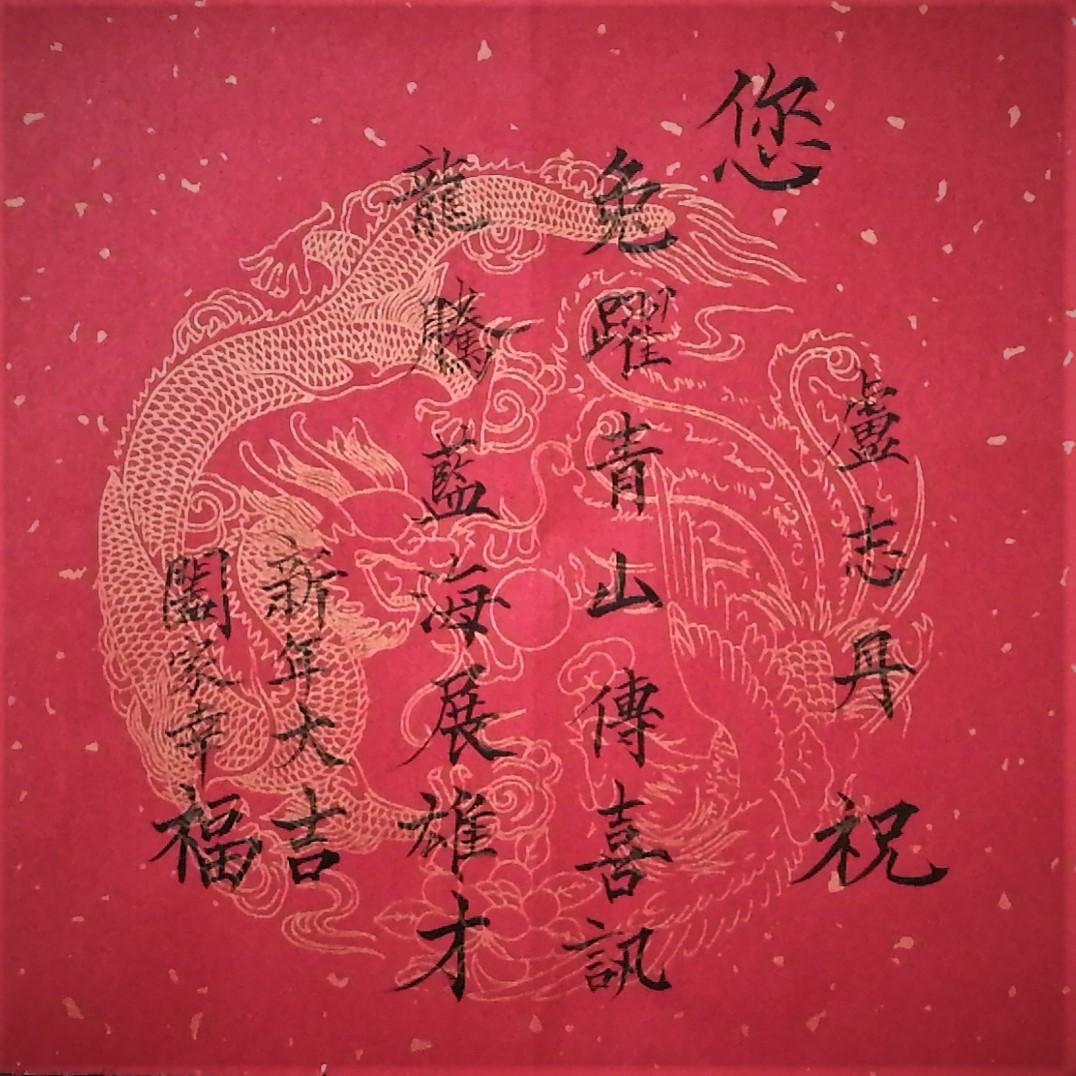 盧志丹祝
您
兔躍青山傳喜訊
龍騰藍海展雄才
新年大吉
闔家幸福